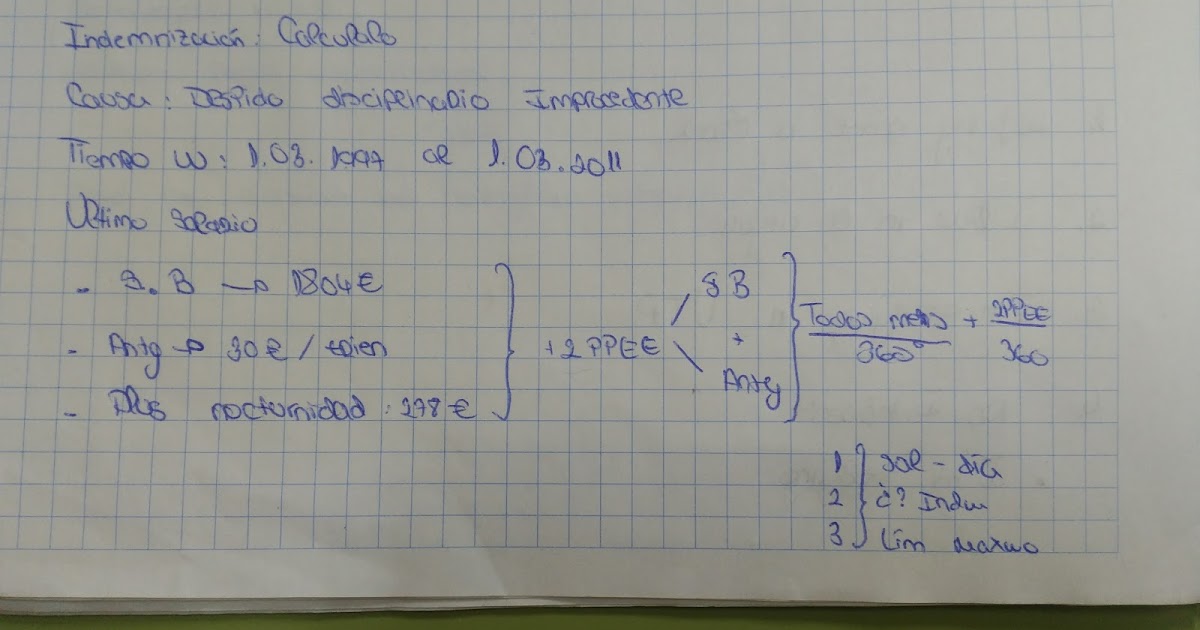 Indemnización: Calculalo
Causa: Despido disciplinario Improcedente
Tiempo W: 1.03.1997 al 1.03.2011
Ultimo Salario
- S.B → 1804€
- Antg → 30€/trien
- Plus nocturnidad: 278€
+ 2 PPEE
SB
+
Antg
Todos meses + 2PPEE
360 360
1 Sal - día
2 ¿? Indm
3 Lím máximo